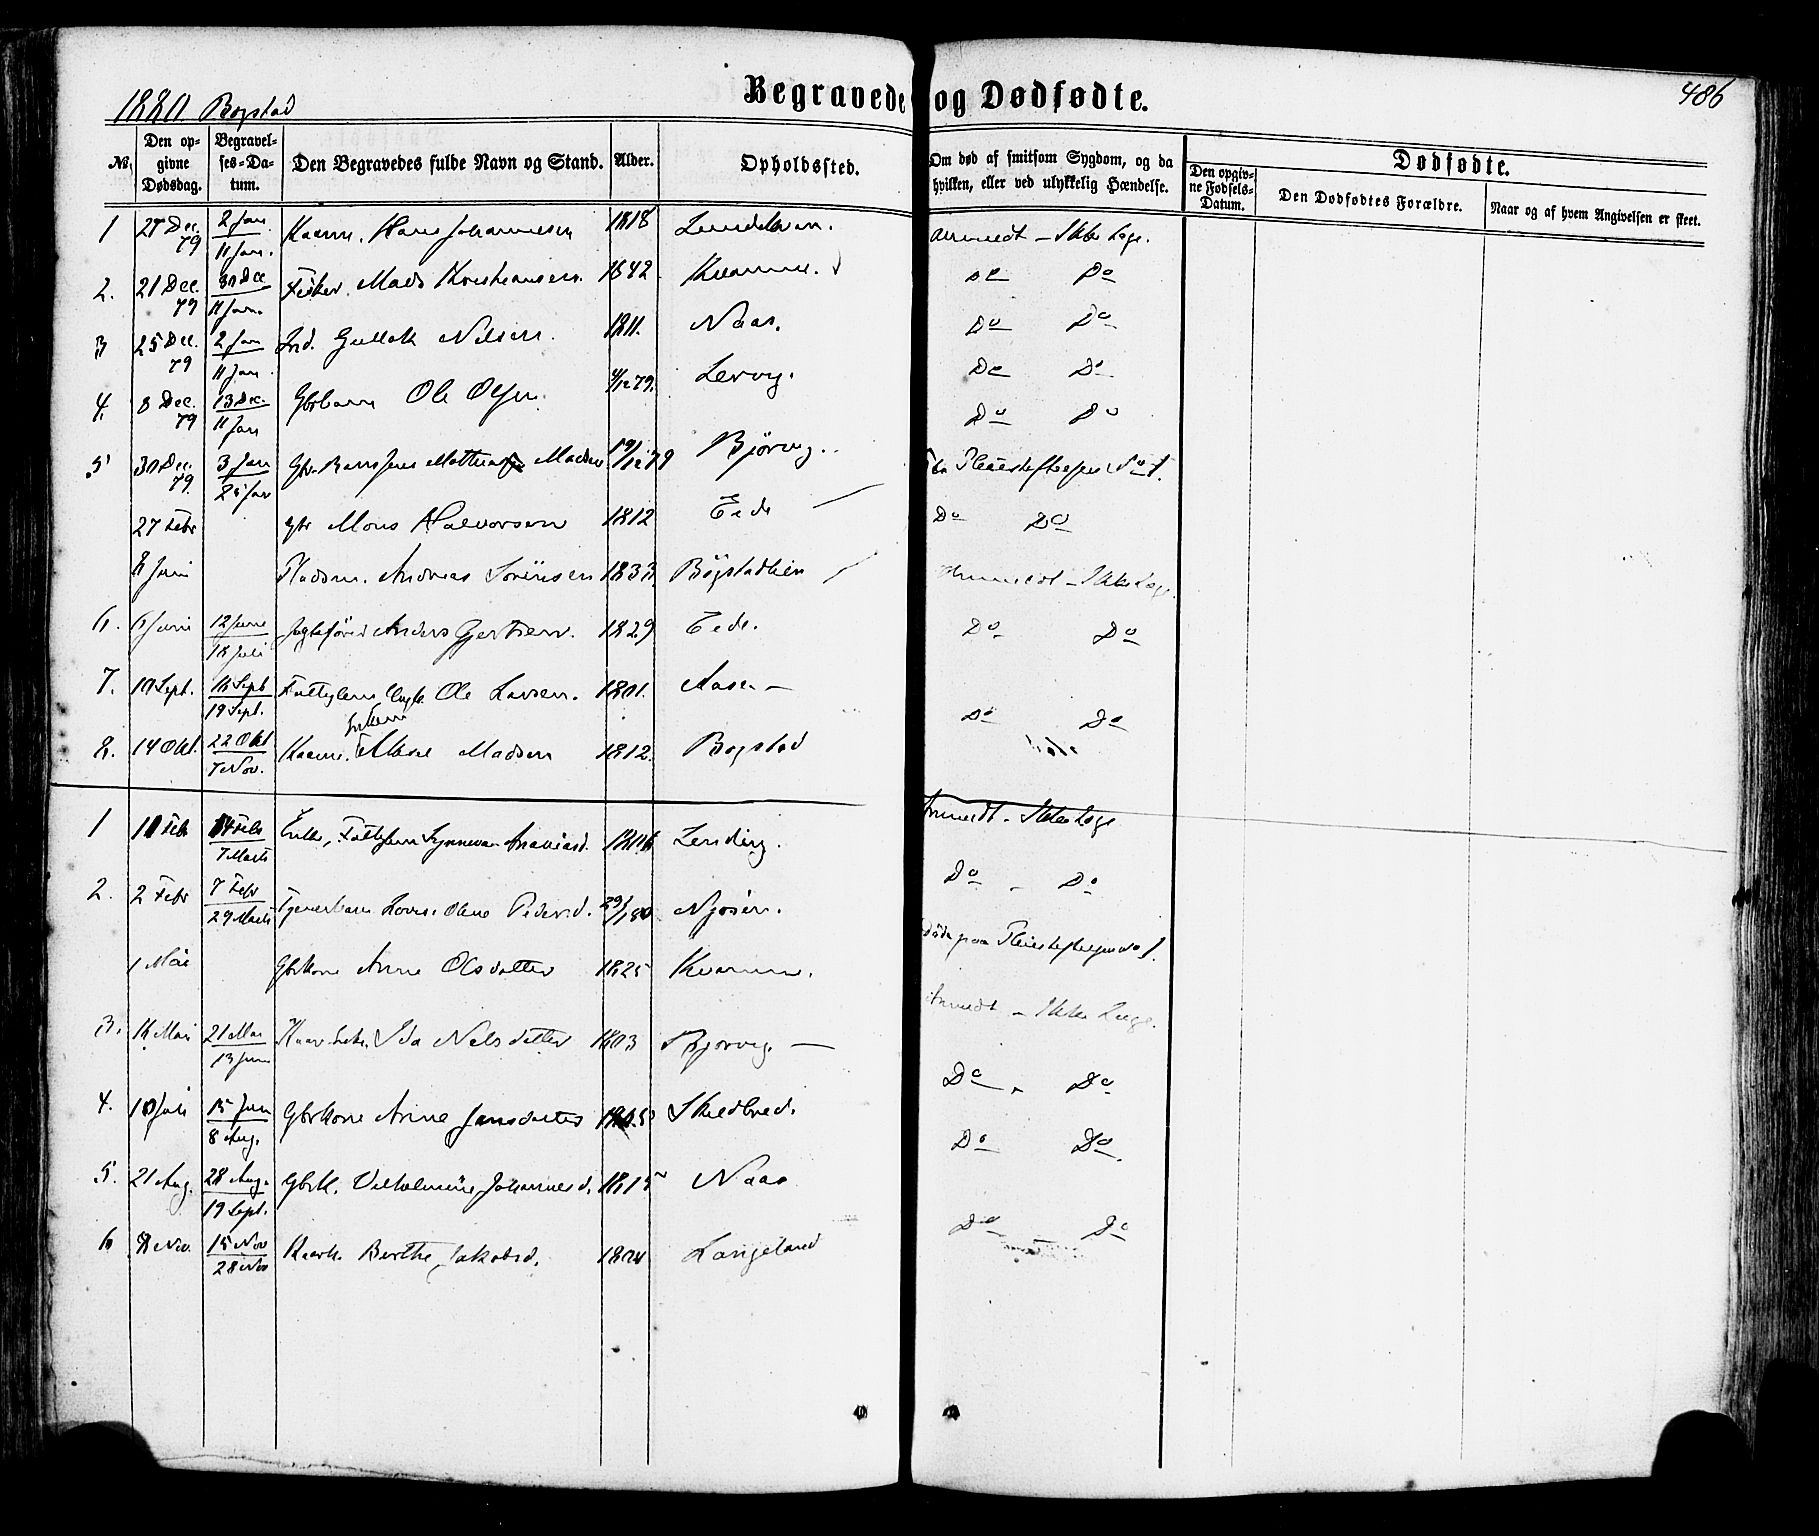 1880 Bogstad
Begravede og Dødfødte.
486
No. Den opgivne Dødsdag. Begravelses-Datum. Den Begravedes fulde Navn og Stand. Alder. Opholdssted. Om død af smitsom Sygdom, og da hvilken, eller ved ulykkelig Hændelse. Dødfødte.
Den opgivne Fødsels-Datum. Den Dødfødtes Forældre. Naar og af hvem Angivelsen er skeet.
1 27 Dec. 79 2 Jan. 11 Jan. Kaarm. Hans Johannesen 1818 Anmeldt – Ikke Læge.
2. 21 Dec. 79 30 Dec 11 Jan. Fisker. Mads Kristiansen. 1842 Kvamme. Do Do
3 25 Dec. 79 2 Jan 11 Jan. Ind. Gullak Nilsen. 1811. Naas. Do Do
4. 8 Dec. 79 13 Dec. 11 Jan Gbrbarn Ole Olsen. 4/12 79. Lervig. Do Do
Do Do
5 30 Dec. 79. 3 Jan 25 Jan Madsen 19/12 79 Bjørvig.
27 Febr Gbr Mons Halvorsen 1812 Eide Do Do
8 Juni Pladsm. Andreas Sørensen 1833. Bøgstadlien Anmeldt – Ikke Læge.
6. 6 Juni 12 Juni 18 Juli Anders Gjertsen. 1829 Eide. Do Do
7. 10 Sept. 16 Sept 19 Sept. Ole Larsen. 1801. Aase –
8. 14 Okt. 22 Okt 7 Nov. Kaarm. Madsen 1812. Bogstad Do Do
1 11 Feb 14 Feb 7 Marts Enke, 1806 Lending. Anmeldt – Ikke Læge
2. 2 Febr 7 Febr 29 Marts Tjenerbarn Lovise Oline Pedersd. 29/1 80 Njøsen. Do – Do
1 Mai Gbrkone Anne Olsdatter 1825 Kvamme. Døde paa
3. 16 Mai 21 Mai 13 Juni Ida Nelsdatter 1803 Bjørvig – Anmeldt – Ikke Læge.
4. 10 Juli 15 Juli 8 Aug. Gbrkone Anne Jensdatter Skilbred. Do Do
5. 21 Aug. 28 Aug. 19 Sept. Gbrk. Vilhelmine Johannesd. 1815 Naas Do Do.
6 8 Nov. 15 Nov 28 Nov Kaark. Berthe Jakobsd. Langeland Do – Do